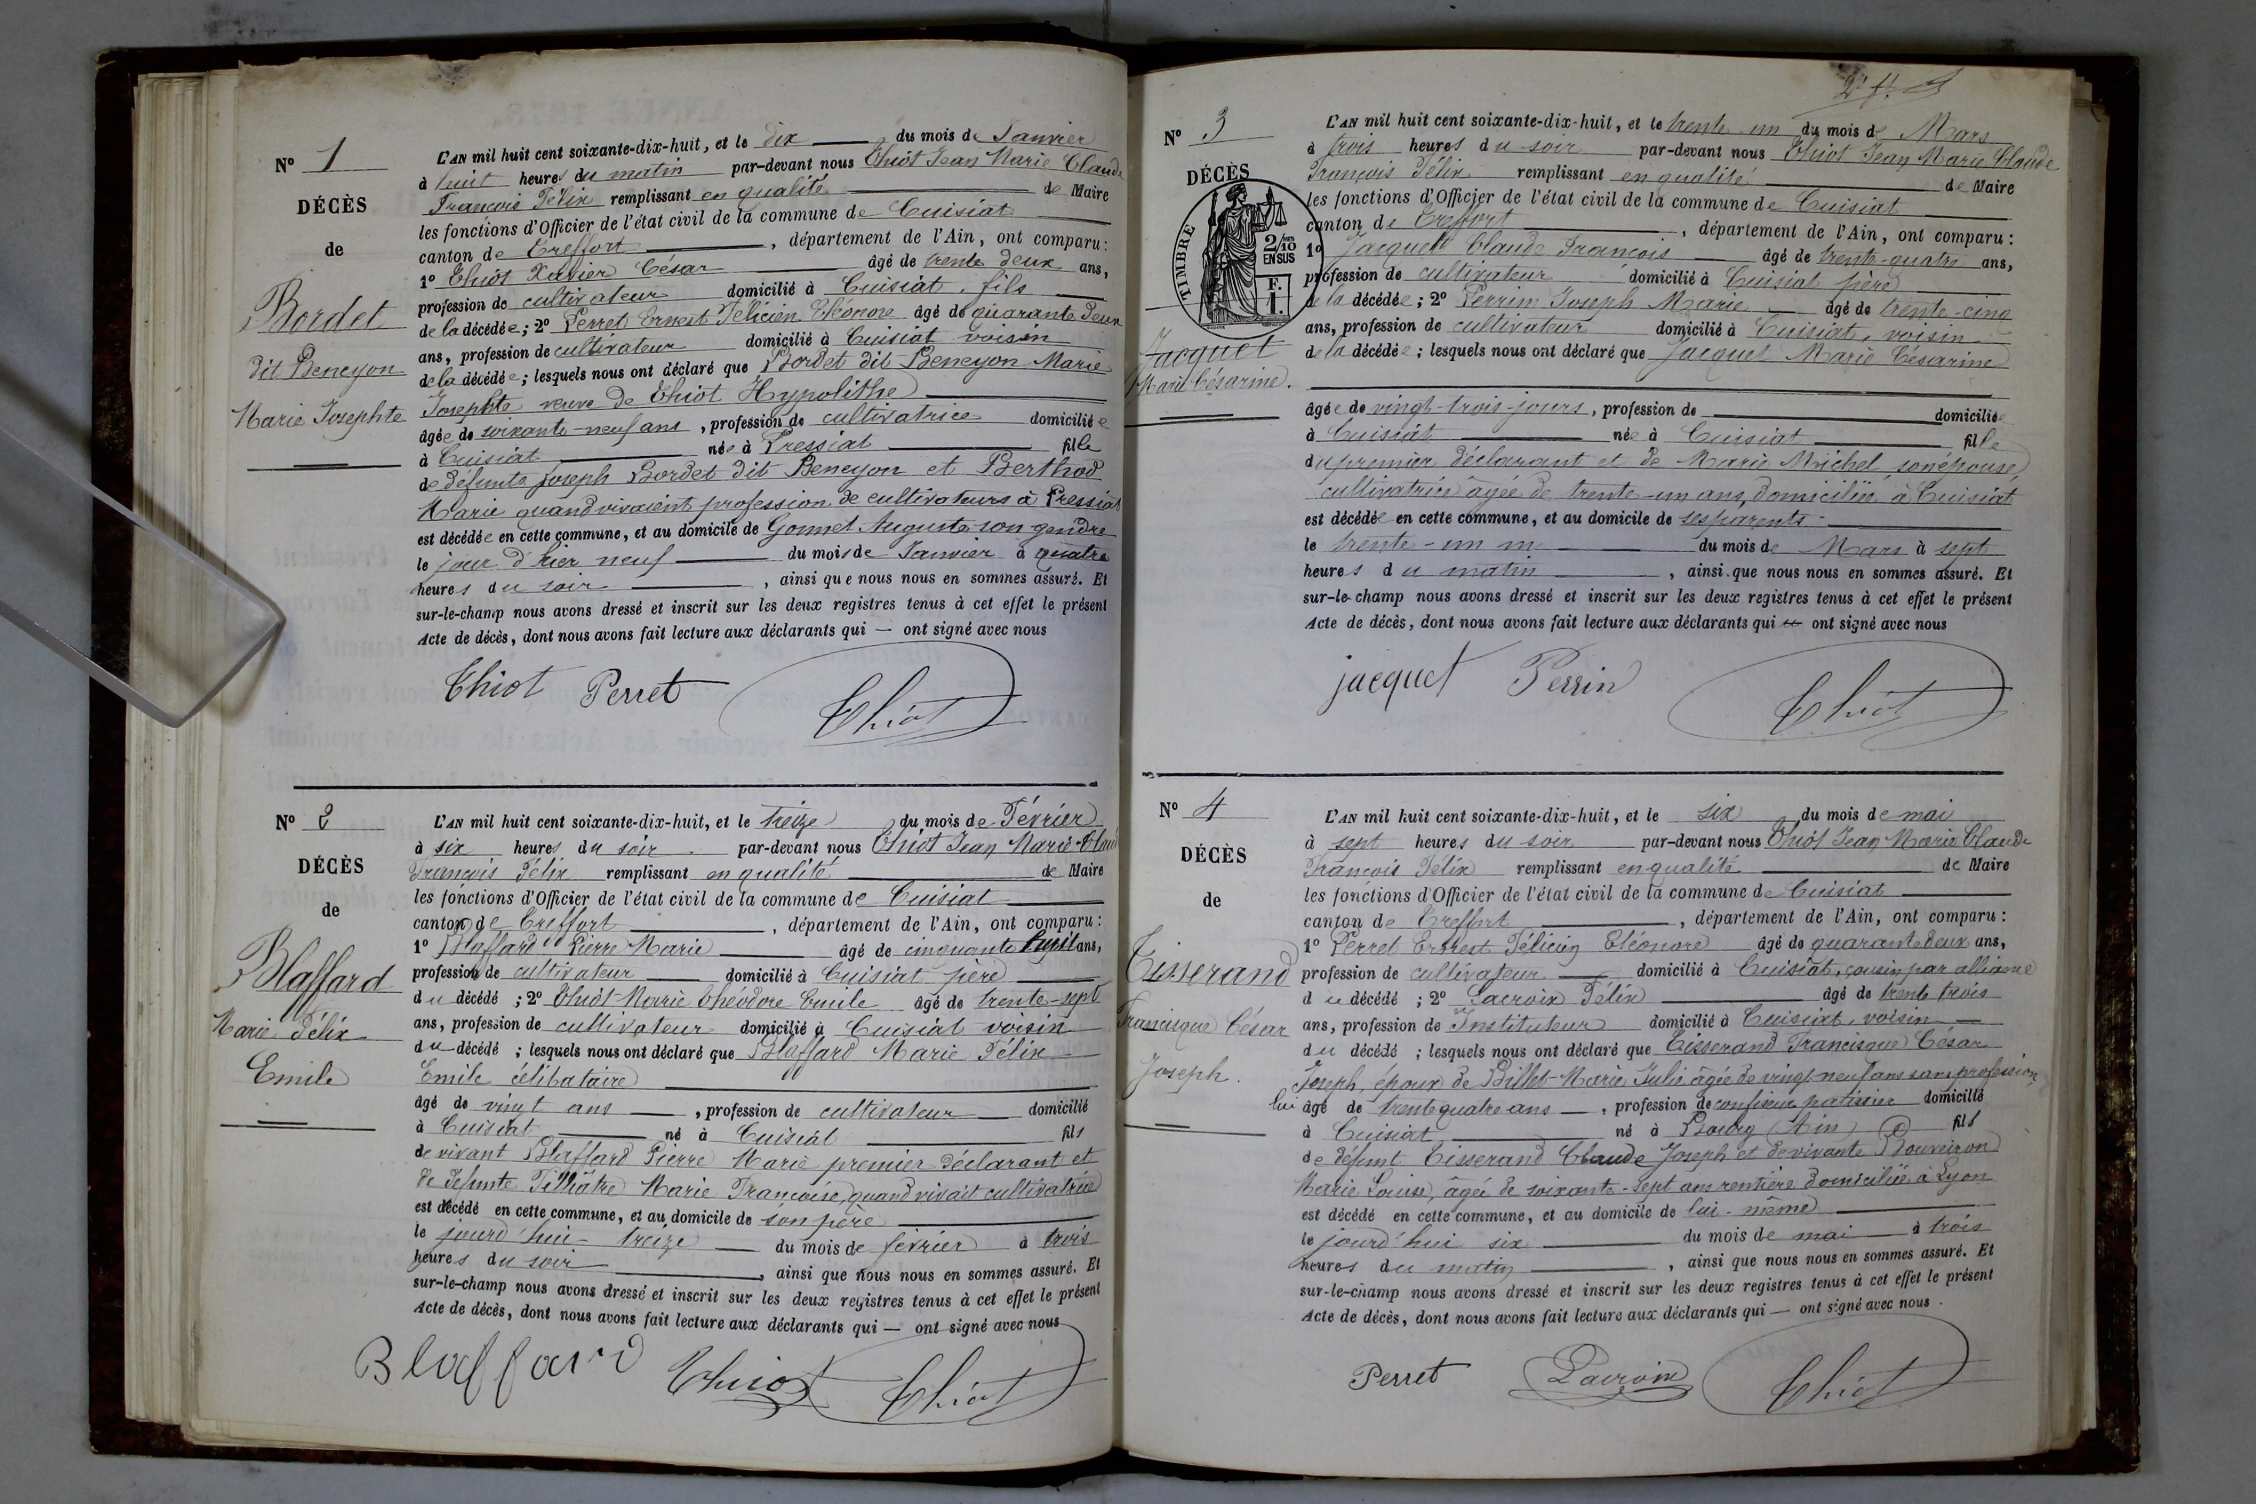 N° 1
DÉCÈS
de
Bordet
dit Beneyon
Marie Josephte
L'AN mil huit cent soixante-dix-huit, et le dix du mois de Janvier
à huit heures du matin par-devant nous Chiot Jean Marie Claude
François Félix remplissant en qualité de Maire
les fonctions d'Officier de l'état civil de la commune de Cuisiat
canton de Treffort, département de l'Ain, ont comparu:
1° Chiot Xavier César âgé de trente deux ans,
profession de cultivateur domicilié à Cuisiat, fils
de la décédée; 2° Perret Ernest Félicien Eléonore âgé de quarante deux
ans, profession de cultivateur domicilié à Cuisiat voisin
de la décédée; lesquels nous ont déclaré que Bordet dit Beneyon Marie
Josephte veuve de Chiot Hypolithe
âgée de soixante-neuf ans, profession de cultivatrice domiciliée
à Cuisiat née à Pressiat fille
de defunts Joseph Bordet dit Beneyon et Berthod
Marie quand vivaient profession de cultivateurs à Pressiat
est décédée en cette commune, et au domicile de Gonnet Auguste son gendre
le jour d'hier neuf du mois de Janvier à quatre
heures du soir, ainsi que nous nous en sommes assuré. Et
sur-le-champ nous avons dressé et inscrit sur les deux registres tenus à cet effet le présent
Acte de décès, dont nous avons fait lecture aux déclarants qui — ont signé avec nous
Chiot Perret Chiot
N° 2
DÉCÈS
de
Blaffard
Marie Félix
Emile
L'AN mil huit cent soixante-dix-huit, et le treize du mois de Février
à six heures du soir par-devant nous Chiot Jean Marie Claud
François Félix remplissant en qualité de Maire
les fonctions d'Officier de l'état civil de la commune de Cuisiat
canton de Treffort, département de l'Ain, ont comparu:
1° Blaffard Pierre Marie âgé de cinquante huit ans,
profession de cultivateur domicilié à Cuisiat père
du décédé; 2° Chiot Marie Théodore Emile âgé de trente-sept
ans, profession de cultivateur domicilié à Cuisiat voisin
du décédé; lesquels nous ont déclaré que Blaffard Marie Félix
Emile célibataire
âgé de vingt ans, profession de cultivateur domicilié
à Cuisiat né à Cuisiat fils
de vivant Blaffard Pierre Marie premier déclarant et
de defunte Marie Françoise, quand vivait cultivatrice
est décédé en cette commune, et au domicile de son père
le jourd'hui treize du mois de février à trois
heures du soir, ainsi que nous nous en sommes assuré. Et
sur-le-champ nous avons dressé et inscrit sur les deux registres tenus à cet effet le présent
Acte de décès, dont nous avons fait lecture aux déclarants qui — ont signé avec nous
Blaffard Chiot Chiot
2e ft.
N° 3
DÉCÈS
TIMBRE
2/10
EN SUS
F.
1.
Jacquet
Marie Césarine.
L'AN mil huit cent soixante-dix-huit, et le trente un du mois de Mars
à trois heures du soir par-devant nous Chiot Jean Marie Claude
François Félix remplissant en qualité de Maire
les fonctions d'Officier de l'état civil de la commune de Cuisiat
canton de Treffort, département de l'Ain, ont comparu:
1° Jacquet Claude François âgé de trente-quatre ans,
profession de cultivateur domicilié à Cuisiat père
de la décédée; 2° Perrin Joseph Marie âgé de trente-cinq
ans, profession de cultivateur domicilié à Cuisiat, voisin
de la décédée; lesquels nous ont déclaré que Jacquet Marie Césarine
âgée de vingt-trois-jours, profession de domiciliée
à Cuisiat née à Cuisiat fille
du premier déclarant et de Marie Michel son épouse
cultivatrice âgée de trente-un ans, domiciliée à Cuisiat
est décédée en cette commune, et au domicile de ses parents
le trente-un du mois de Mars à sept
heures du matin, ainsi que nous nous en sommes assuré. Et
sur-le-champ nous avons dressé et inscrit sur les deux registres tenus à cet effet le présent
Acte de décès, dont nous avons fait lecture aux déclarants qui ont signé avec nous
jacquet Perrin Chiot
N° 4
DÉCÈS
de
Tisserand
Francisque César
Joseph.
L'AN mil huit cent soixante-dix-huit, et le six du mois de mai
à sept heures du soir par-devant nous Chiot Jean Marie Claude
François Félix remplissant en qualité de Maire
les fonctions d'Officier de l'état civil de la commune de Cuisiat
canton de Treffort, département de l'Ain, ont comparu:
1° Perret Ernest Félicien Eléonore âgé de quarante deux ans,
profession de cultivateur domicilié à Cuisiat, cousin par alliance
du décédé; 2° Lacroix Félix âgé de trente trois
ans, profession de Instituteur domicilié à Cuisiat, voisin
du décédé; lesquels nous ont déclaré que Tisserand Francisque César
Joseph, époux de Billet Marie Julie âgée de vingt neuf ans sans profession
lui âgé de trente quatre ans, profession de confiseur patissier domicilié
à Cuisiat né à Bourg (Ain) fils
de défunt Tisserand Claude Joseph et de vivante Bouveiron
Marie Louise, âgée de soixante-sept ans rentière domiciliée à Lyon
est décédé en cette commune, et au domicile de lui-même
le jourd'hui six du mois de mai à trois
heures du matin, ainsi que nous nous en sommes assuré. Et
sur-le-champ nous avons dressé et inscrit sur les deux registres tenus à cet effet le présent
Acte de décès, dont nous avons fait lecture aux déclarants qui — ont signé avec nous.
Perret Lacroix Chiot